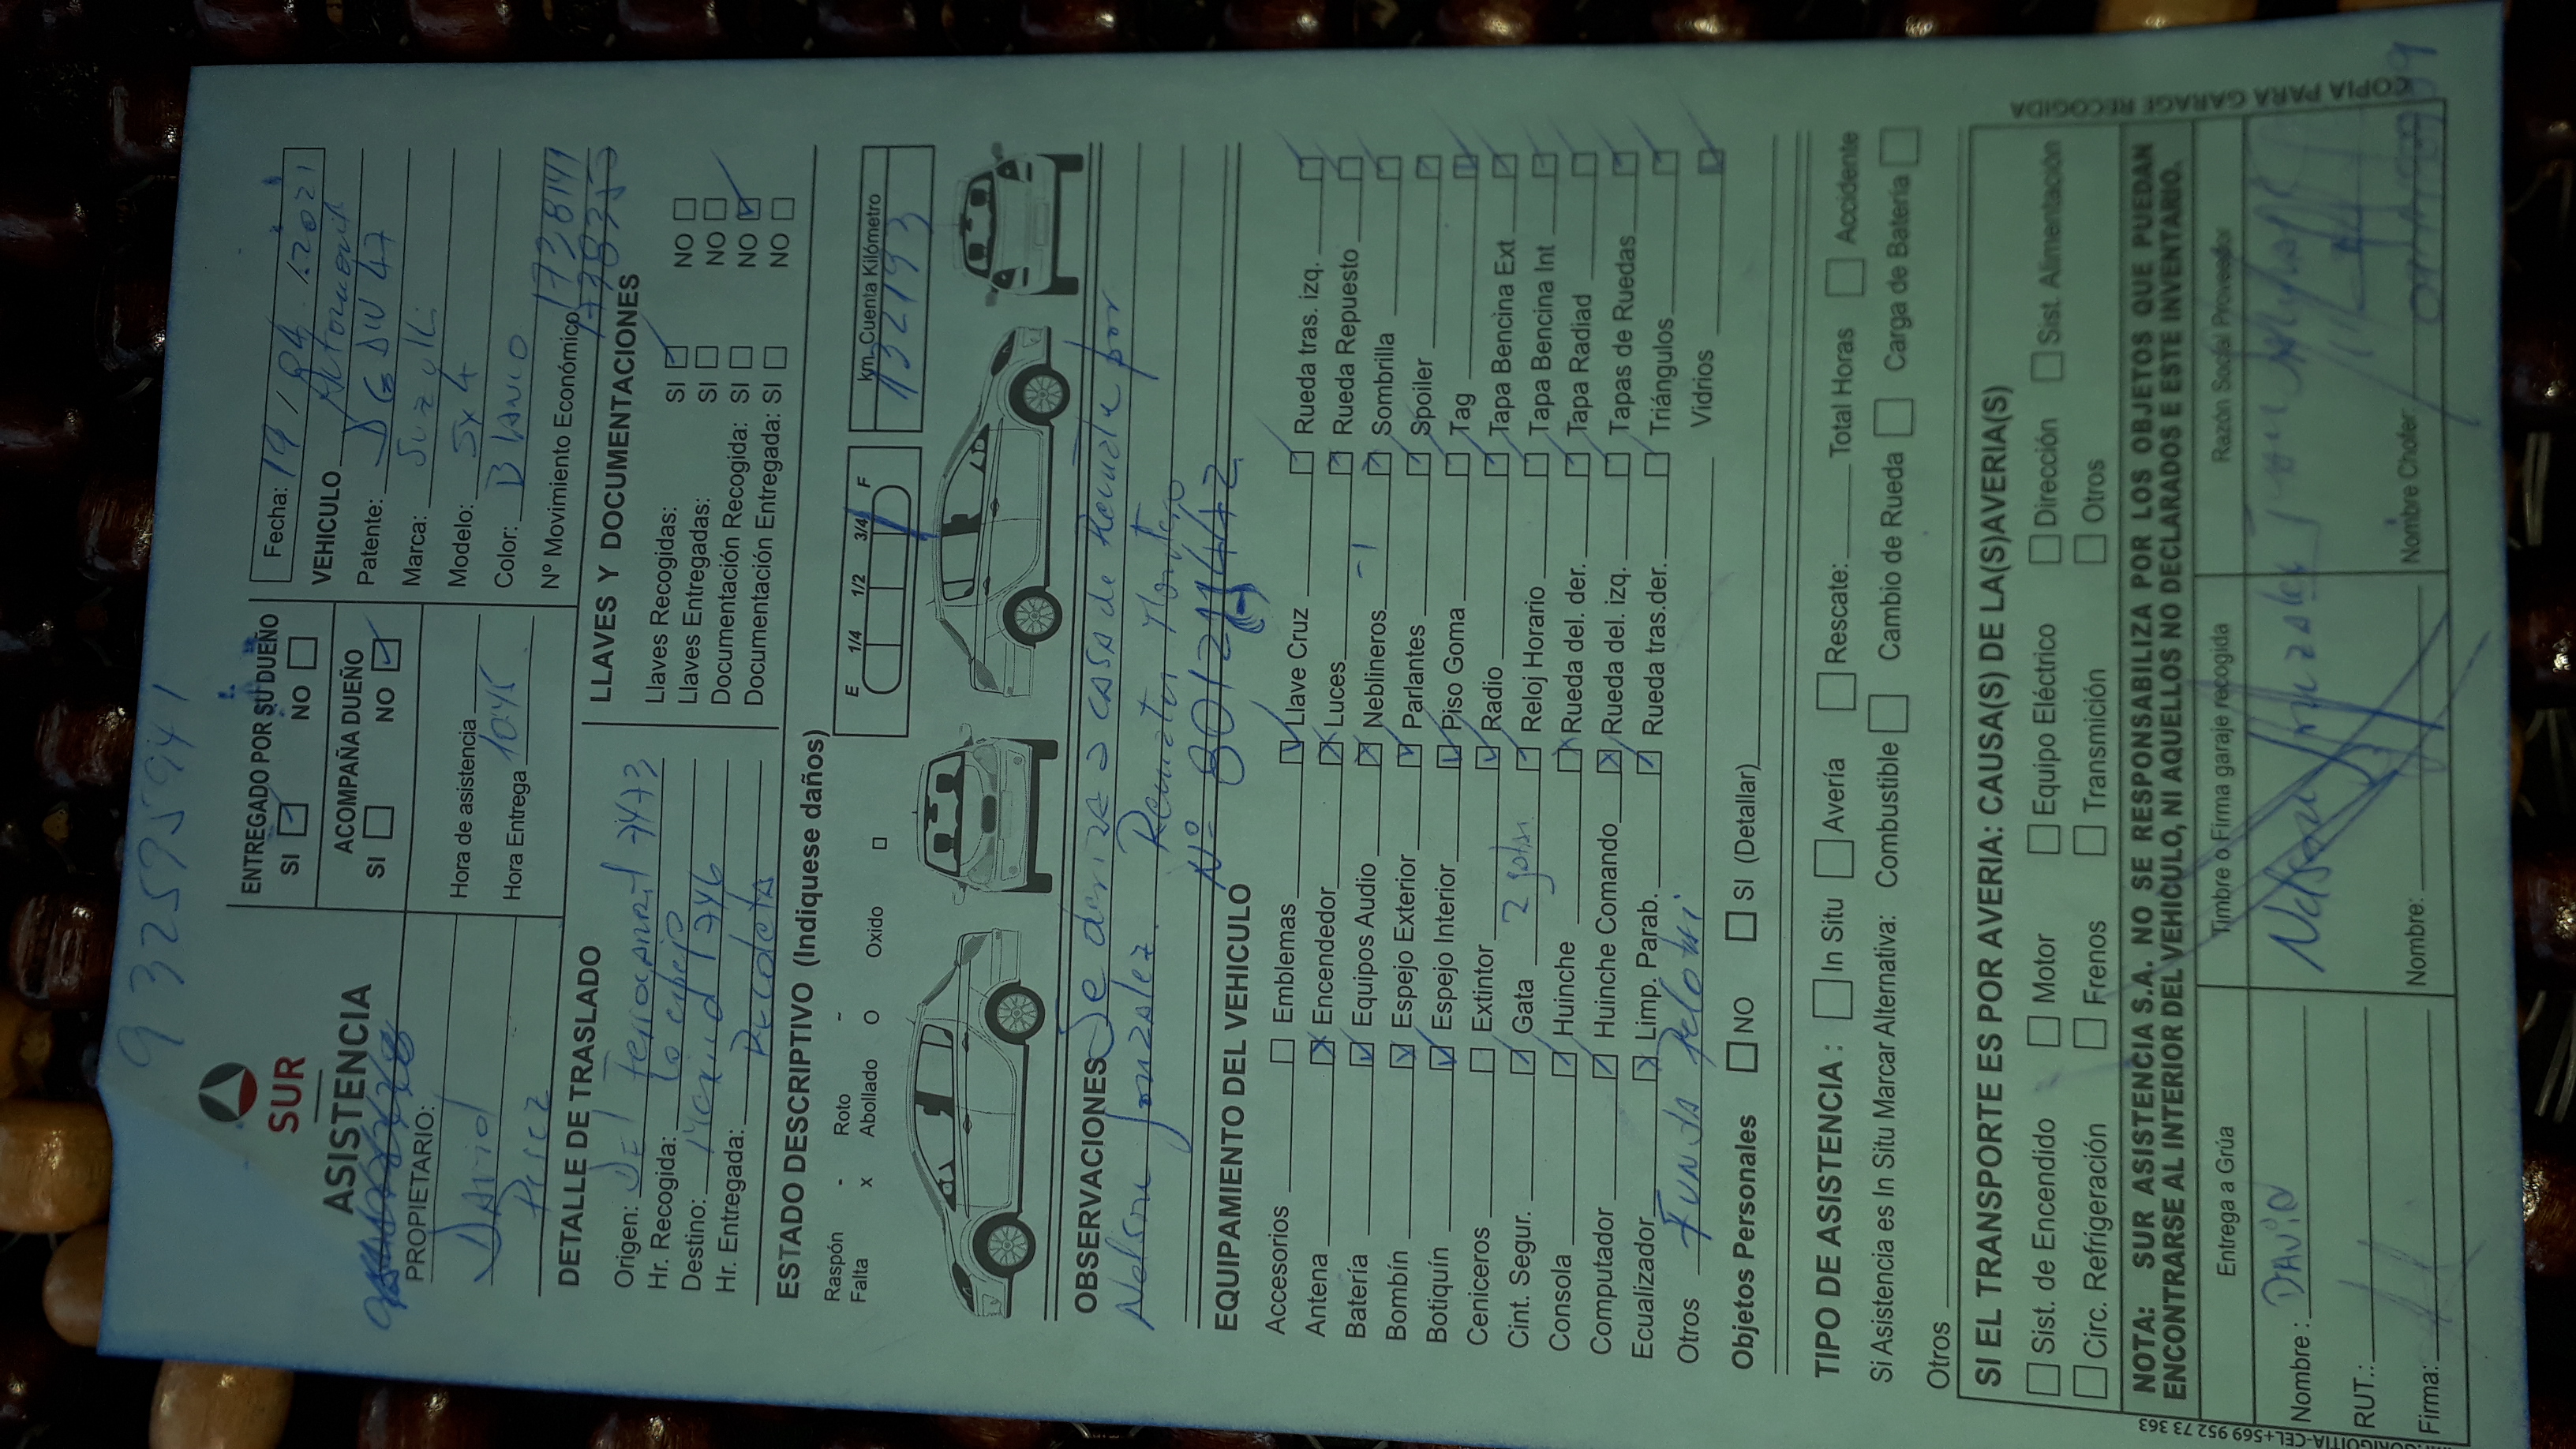 932595941
SUR
ASISTENCIA
ENTREGADO POR SU DUEÑO
SI NO
ACOMPAÑA DUEÑO
SI NO
Hora de asistencia
Hora Entrega 10:45
Fecha: 19/04/2021
VEHICULO
Patente: DGDW47
Marca: Suzuki
Modelo: Sx4
Color: Blanco
Nº Movimiento Económico
PROPIETARIO:
David
Perez
DETALLE DE TRASLADO
Origen: Del Ferrocarril 7473
Hr. Recogida: Lo espejo
Destino: 1746
Hr. Entregada: Recoleta
LLAVES Y DOCUMENTACIONES
Llaves Recogidas: SI NO
Llaves Entregadas: SI NO
Documentación Recogida: SI NO
Documentación Entregada: SI NO
ESTADO DESCRIPTIVO (Indiquese daños)
Raspón - Roto ~
Falta x Abollado O Oxido □
E 1/4 1/2 3/4 F
km. Cuenta Kilómetro
132193
OBSERVACIONES Se deriva a casa de Remate por
Nelson Gonzalez. Remates Montero
Nº
EQUIPAMIENTO DEL VEHICULO
Accesorios Emblemas Llave Cruz Rueda tras. izq.
Antena Encendedor Luces Rueda Repuesto
Batería Equipos Audio Neblineros -1 Sombrilla
Bombín Espejo Exterior Parlantes Spoiler
Botiquín Espejo Interior Piso Goma Tag
Ceniceros Extintor Radio Tapa Bencina Ext
Cint. Segur. Gata Reloj Horario Tapa Bencina Int
Consola Huinche Rueda del. der. Tapa Radiad
Computador Huinche Comando Rueda del. izq. Tapas de Ruedas
Ecualizador Limp. Parab. Rueda tras.der. Triángulos
Otros Funda Vidrios
Objetos Personales NO SI (Detallar)
TIPO DE ASISTENCIA : In Situ Avería Rescate: Total Horas Accidente
Si Asistencia es In Situ Marcar Alternativa: Combustible Cambio de Rueda Carga de Batería
Otros
SI EL TRANSPORTE ES POR AVERIA: CAUSA(S) DE LA(S)AVERIA(S)
Sist. de Encendido Motor Equipo Eléctrico Dirección Sist. Alimentación
Circ. Refrigeración Frenos Transmición Otros
NOTA: SUR ASISTENCIA S.A. NO SE RESPONSABILIZA POR LOS OBJETOS QUE PUEDAN
ENCONTRARSE AL INTERIOR DEL VEHÍCULO, NI AQUELLOS NO DECLARADOS E ESTE INVENTARIO.
Entrega a Grúa
Nombre : DAVID
RUT.:
Firma:
Timbre o Firma garaje recogida
Nelson Gonzalez
Nombre:
Razón Social Proveedor
Nombre Chofer:
COPIA PARA GARAGE RECOGIDA
CEL+569 952 73 363